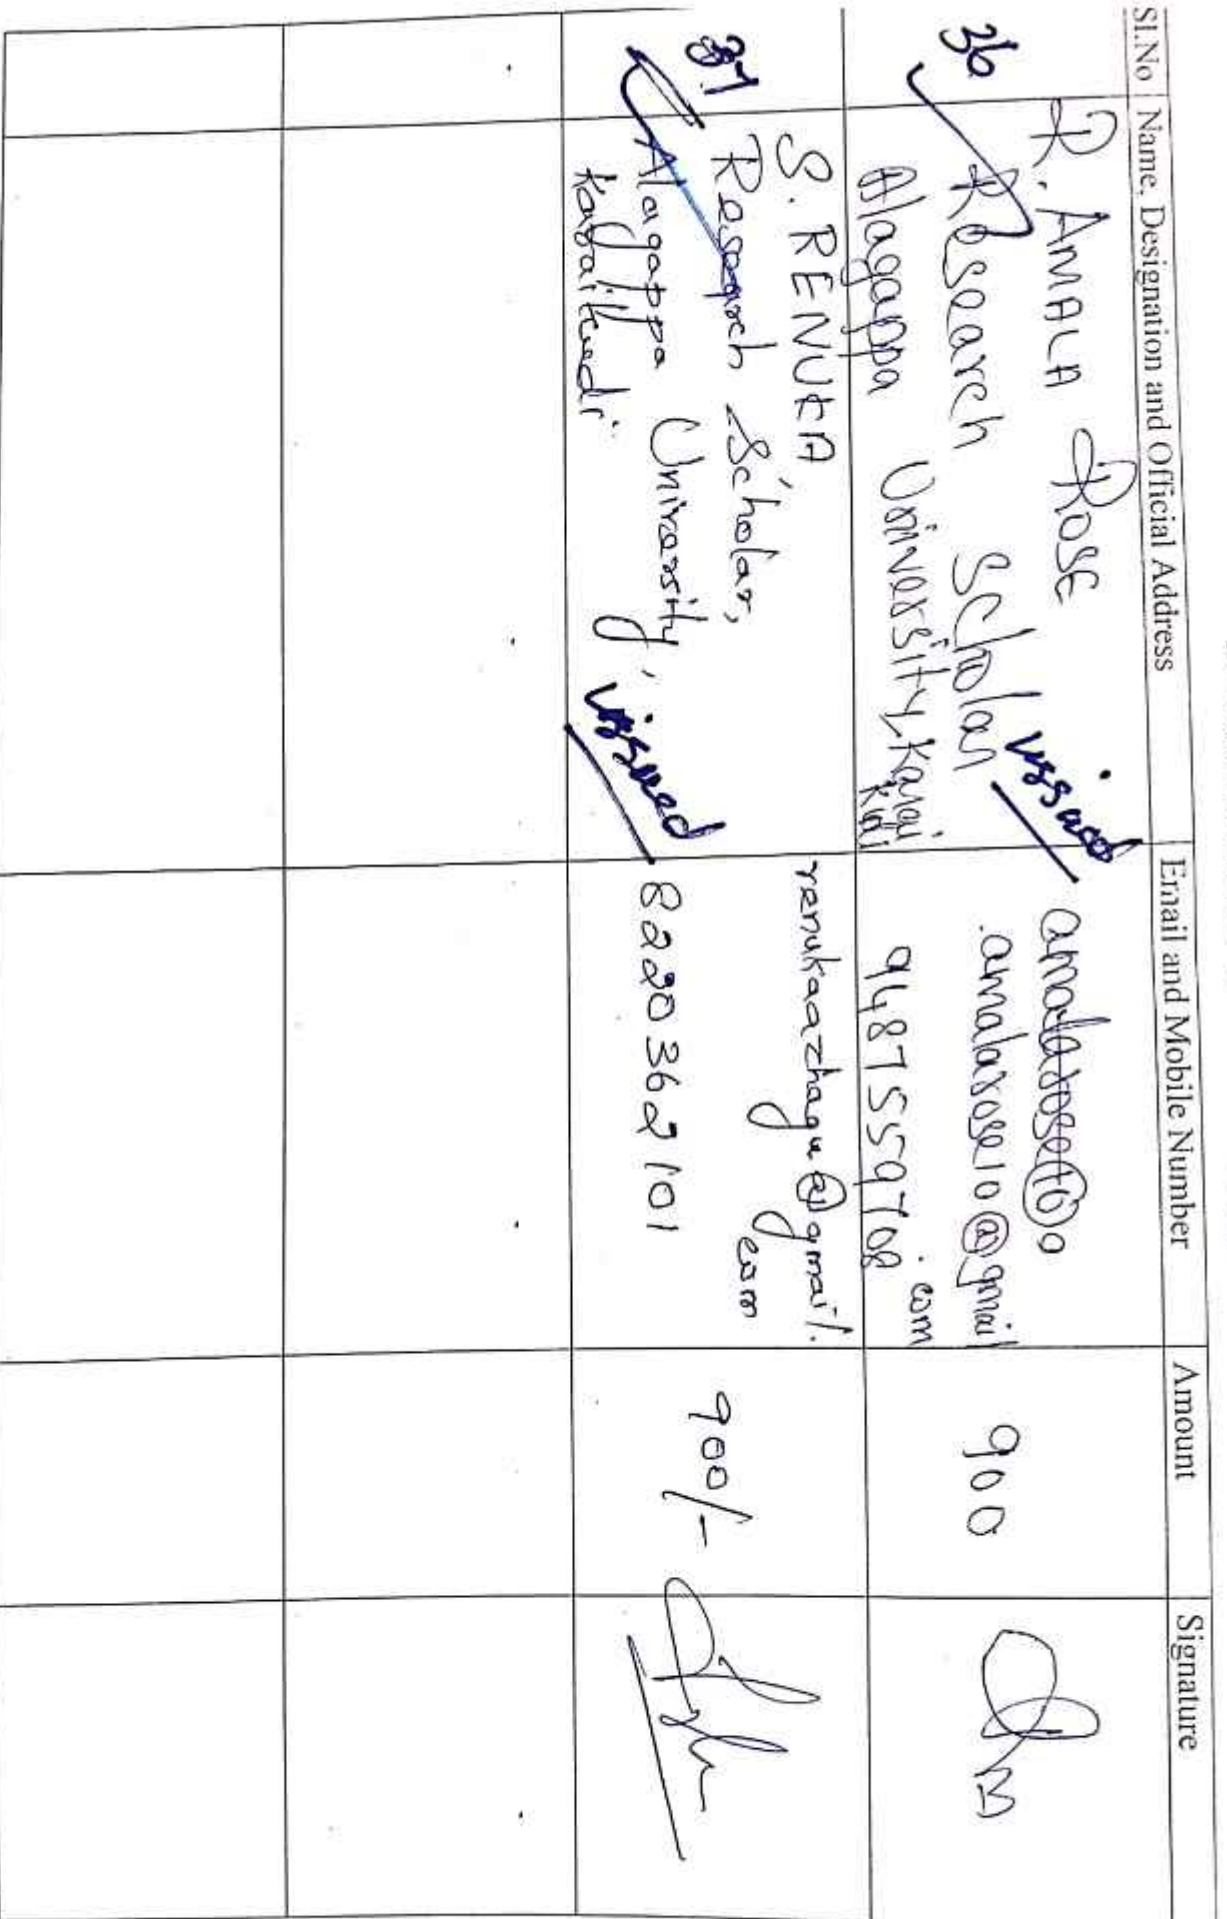 Sl.No Name, Designation and Official Address Email and Mobile Number Amount Signature
36
R. AMALA ROSE
Research Scholar
Alagappa University, Karai
kudi
issued
amalarose10
amalarose10@gmail
.com
9487559708
900
37
S. RENUKA,
Research Scholar,
Alagappa University,
Karaikudi.
issued
renukaazhagu@gmail.
com
8220362101
900/-